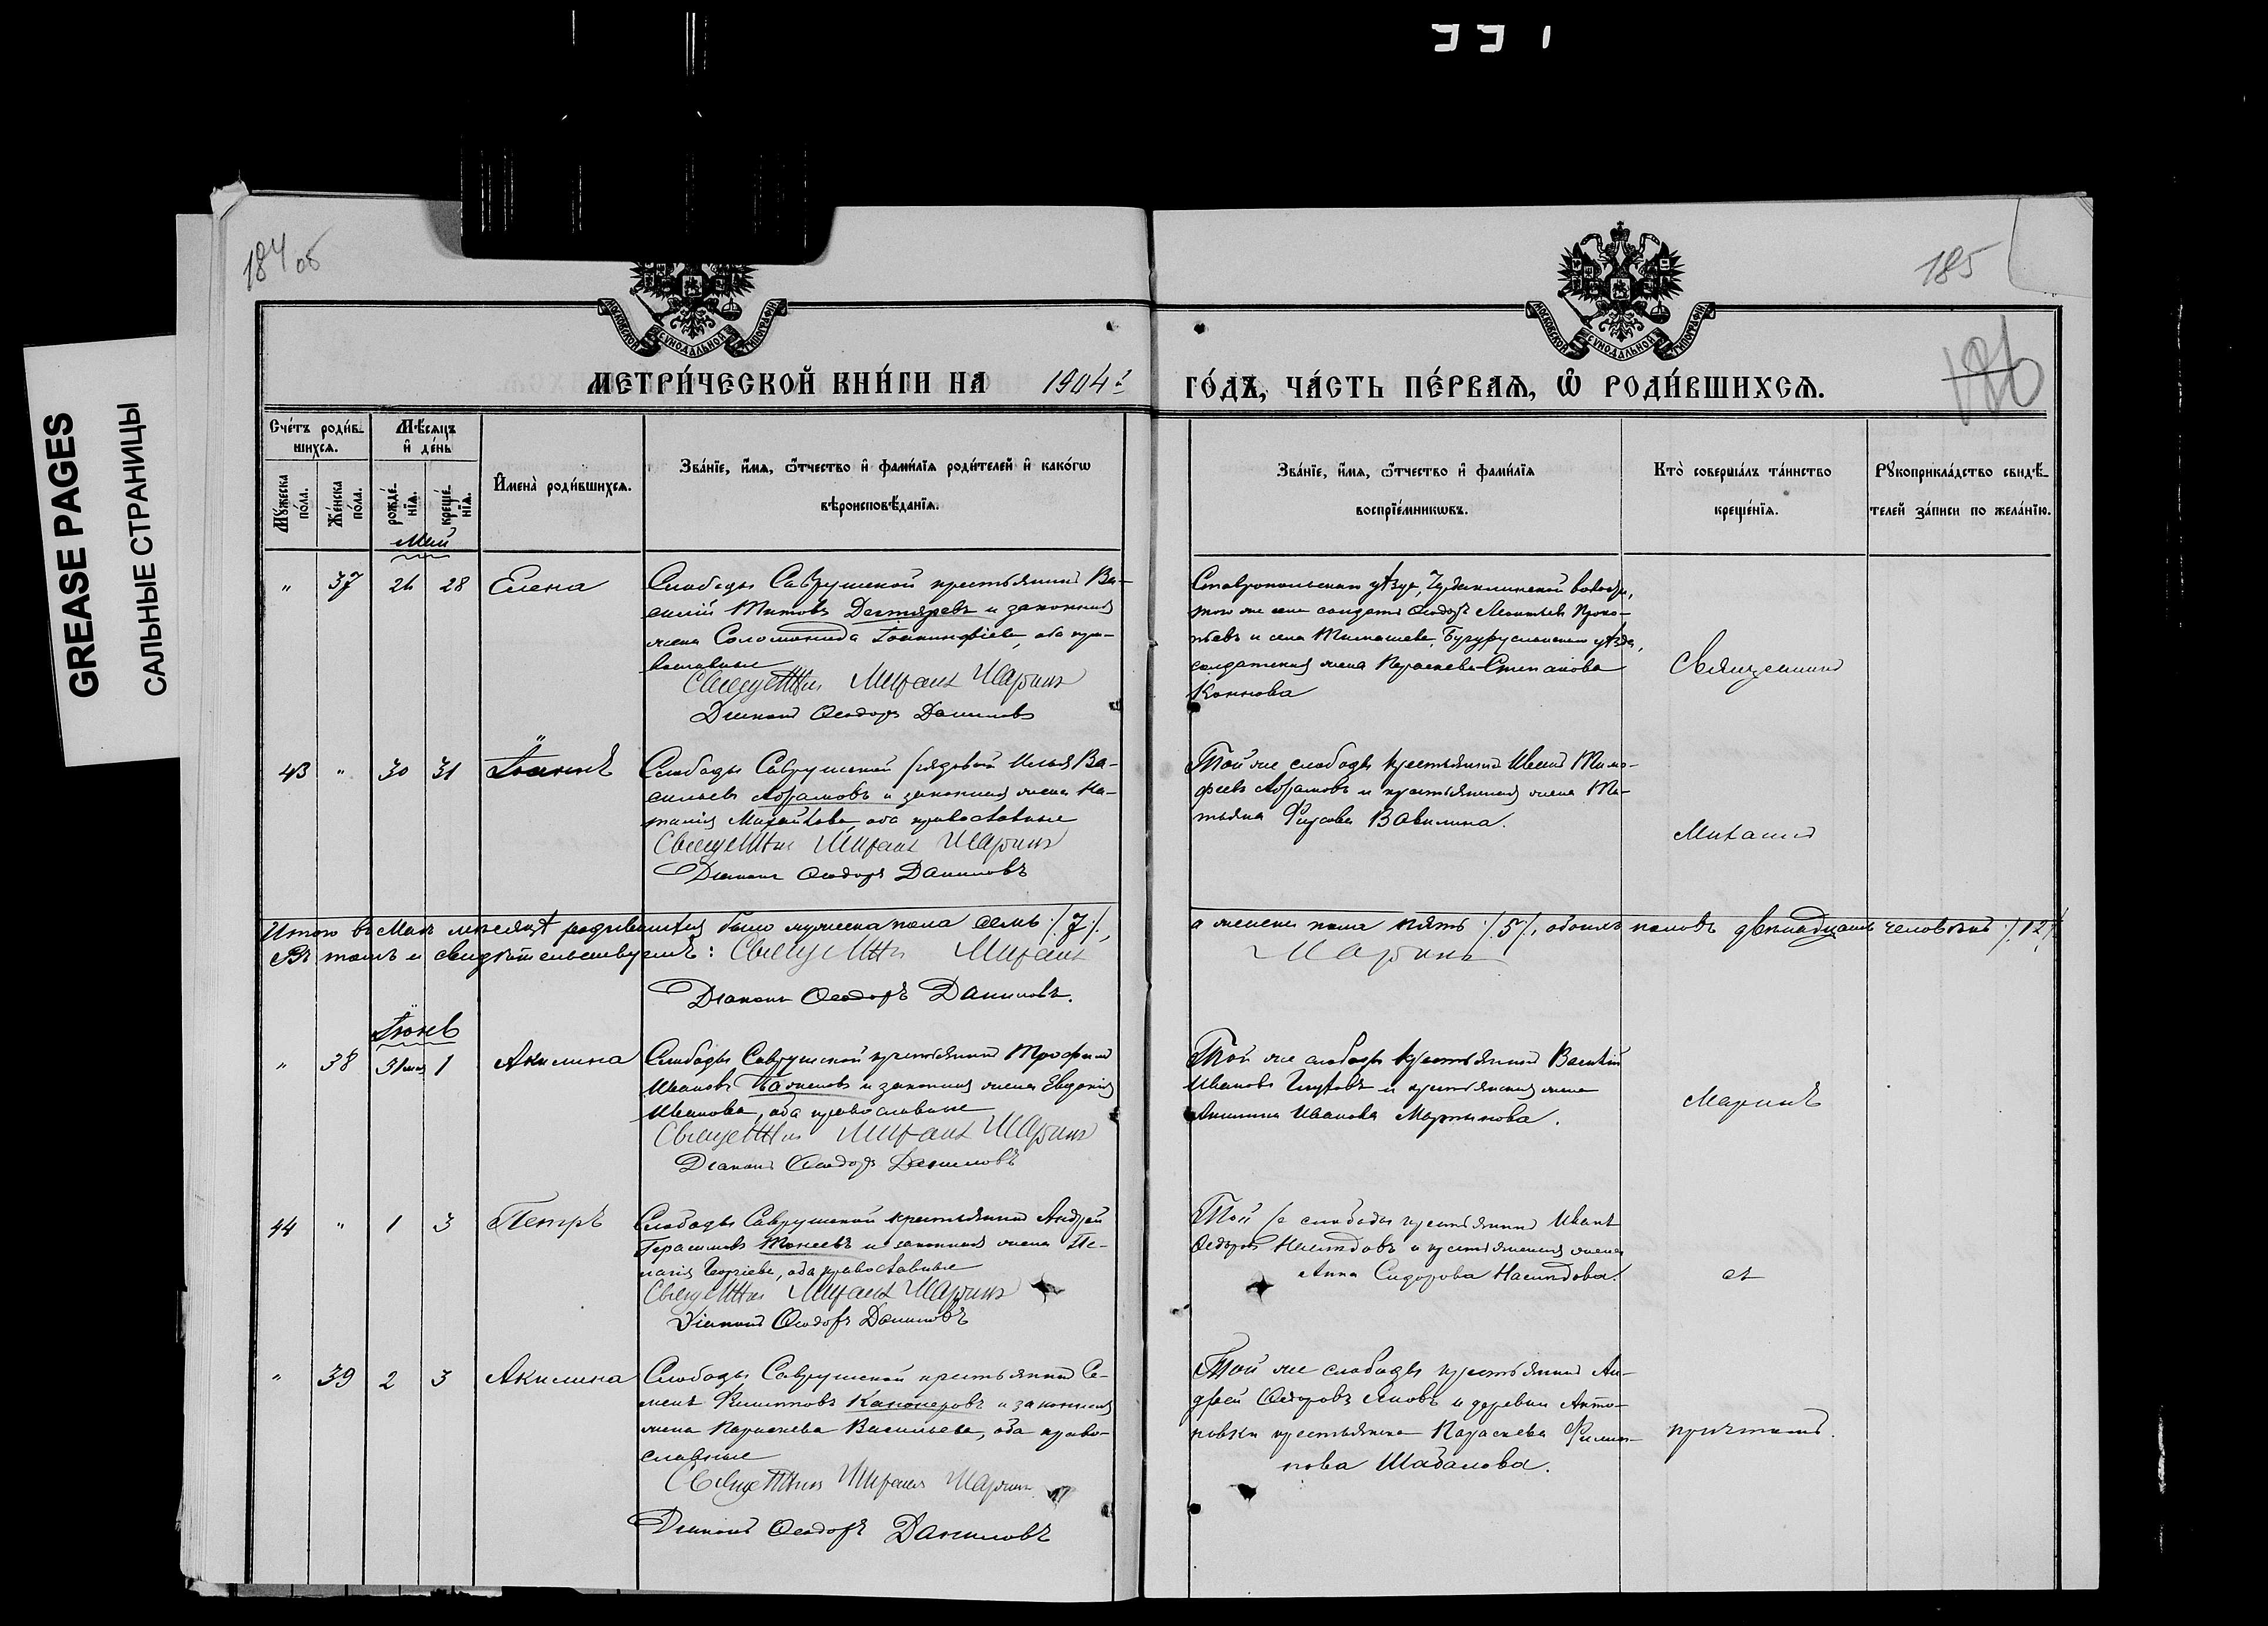 331
184 об
185
186
GREASE PAGES
САЛЬНЫЕ СТРАНИЦЫ
МОСКОВСКОЙ СѴНОДАЛЬНОЙ ТИПОГРАФІИ
МОСКОВСКОЙ СѴНОДАЛЬНОЙ ТИПОГРАФІИ
МЕТРИ́ЧЕСКОЙ КНИ́ГИ НА 1904 г
ГО́ДЪ, ЧА́СТЬ ПЕ́РВАѦ, Ѡ҆ РОДИ́ВШИХСѦ.
Сче́тъ роди́в-
шихсѧ.
Мѣ́сѧцъ
и҆ де́нь
Мꙋ́жеска по́ла.
Же́нска по́ла.
рожде́-
нїѧ.
креще́-
нїѧ.
И҆мена̀ роди́вшихсѧ.
Зва́нїе, и҆́мѧ, ѻ҆́тчество и҆ фами́лїѧ роди́телей и҆ како́гѡ
вѣроисповѣ́данїѧ.
Зва́нїе, и҆́мѧ, ѻ҆́тчество и҆ фами́лїѧ
воспрїе́мникѡвъ.
Кто̀ соверша́лъ та́инство
креще́нїѧ.
Рꙋкоприкла́дство свидѣ́-
телей за́писи по жела́нїю.
Май
" 37 26 28 Елена
Слободы Саврушской крестьянинъ Ва-
силій Титовъ Дегтяревъ и законная
жена Соломонида Іоанникіева, оба пра-
вославные
Священникъ Михаилъ Маринъ
Діаконъ Ѳеодоръ Даниловъ
Ставропольскаго уѣзда, волости,
того же села солдатъ Ѳеодоръ Леонтьевъ Проко-
пьевъ и села Тимашева, Бугурусланскаго уѣзда,
солдатская жена Параскева Степанова
Коннова
Священникъ
43 " 30 31 Іоаннъ
Слободы Саврушской рядовой Илья Ва-
сильевъ Абрамовъ и законная жена На-
талія Михайлова оба православные
Священникъ Михаилъ Маринъ
Діаконъ Ѳеодоръ Даниловъ
Той же слободы крестьянинъ Иванъ Тимо-
феевъ Абрамовъ и крестьянская жена Та-
тьяна Фирсова Вавилина.
Михаилъ
Итого въ Маѣ мѣсяцѣ родившихся было мужеска пола семь /.7./,
а женска пола пять /.5./, обоихъ половъ двѣнадцать человѣкъ /.12./
Въ томъ и свидѣтельствуемъ: Священникъ Михаилъ
Маринъ
Діаконъ Ѳеодоръ Даниловъ.
Іюнь
" 38 31 мая 1 Акилина
Слободы Саврушской крестьянинъ Трофимъ
Ивановъ Баженовъ и законная жена Евдокія
Иванова, оба православные
Священникъ Михаилъ Маринъ
Діаконъ Ѳеодоръ Даниловъ
Той же слободы крестьянинъ Василій
Ивановъ Глуховъ и крестьянская жена
Акилина Иванова Мартынова.
Маринъ
44 " 1 3 Петръ
Слободы Саврушской крестьянинъ Андрей
Герасимовъ Тонеевъ и законная жена Пе-
лагія Георгіева, оба православные
Священникъ Михаилъ Маринъ
Діаконъ Ѳеодоръ Даниловъ
Той же слободы крестьянинъ Иванъ
Ѳедоровъ Наслѣдовъ и крестьянская жена
Анна Сидорова Наслѣдова.
съ
" 39 2 3 Акилина
Слободы Саврушской крестьянинъ Се-
менъ Филипповъ Канонеровъ и законная
жена Параскева Васильева, оба право-
славные
Священникъ Михаилъ Маринъ
Діаконъ Ѳеодоръ Даниловъ
Той же слободы крестьянинъ Ан-
дрей Ѳедоровъ и деревни Анто-
новки крестьянка Параскева Филип-
пова Шабалова.
причтомъ.